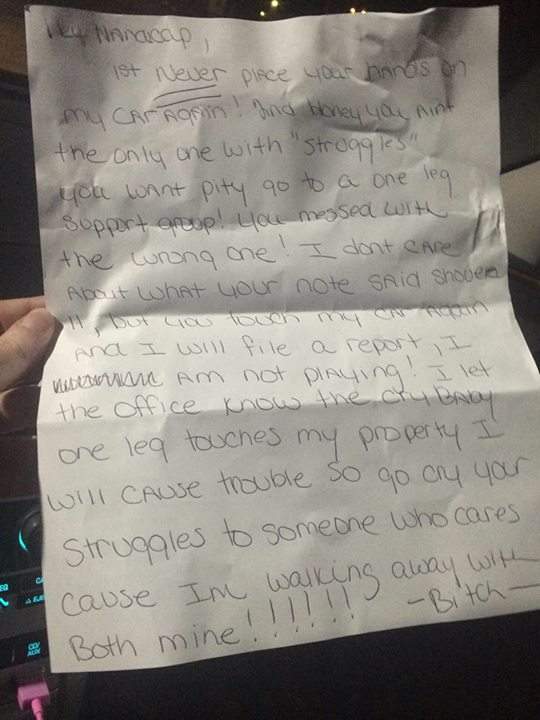 Hey Handicap,
1st Never place your hands on
my car Again! 2nd Honey you Aint
the only one with "struggles"
you want pity go to a one leg
support group! You messed with
the wrong one! I dont care
About what your note said shove
it, but you touch my car Again
And I will file a report, I
Am not playing! I let
the office know the cry BaBy
one leg touches my property I
will cause trouble so go cry your
struggles to someone who cares
cause Im walking away with
Both mine!!!!!! -Bitch-
CD/
AUX
EQ